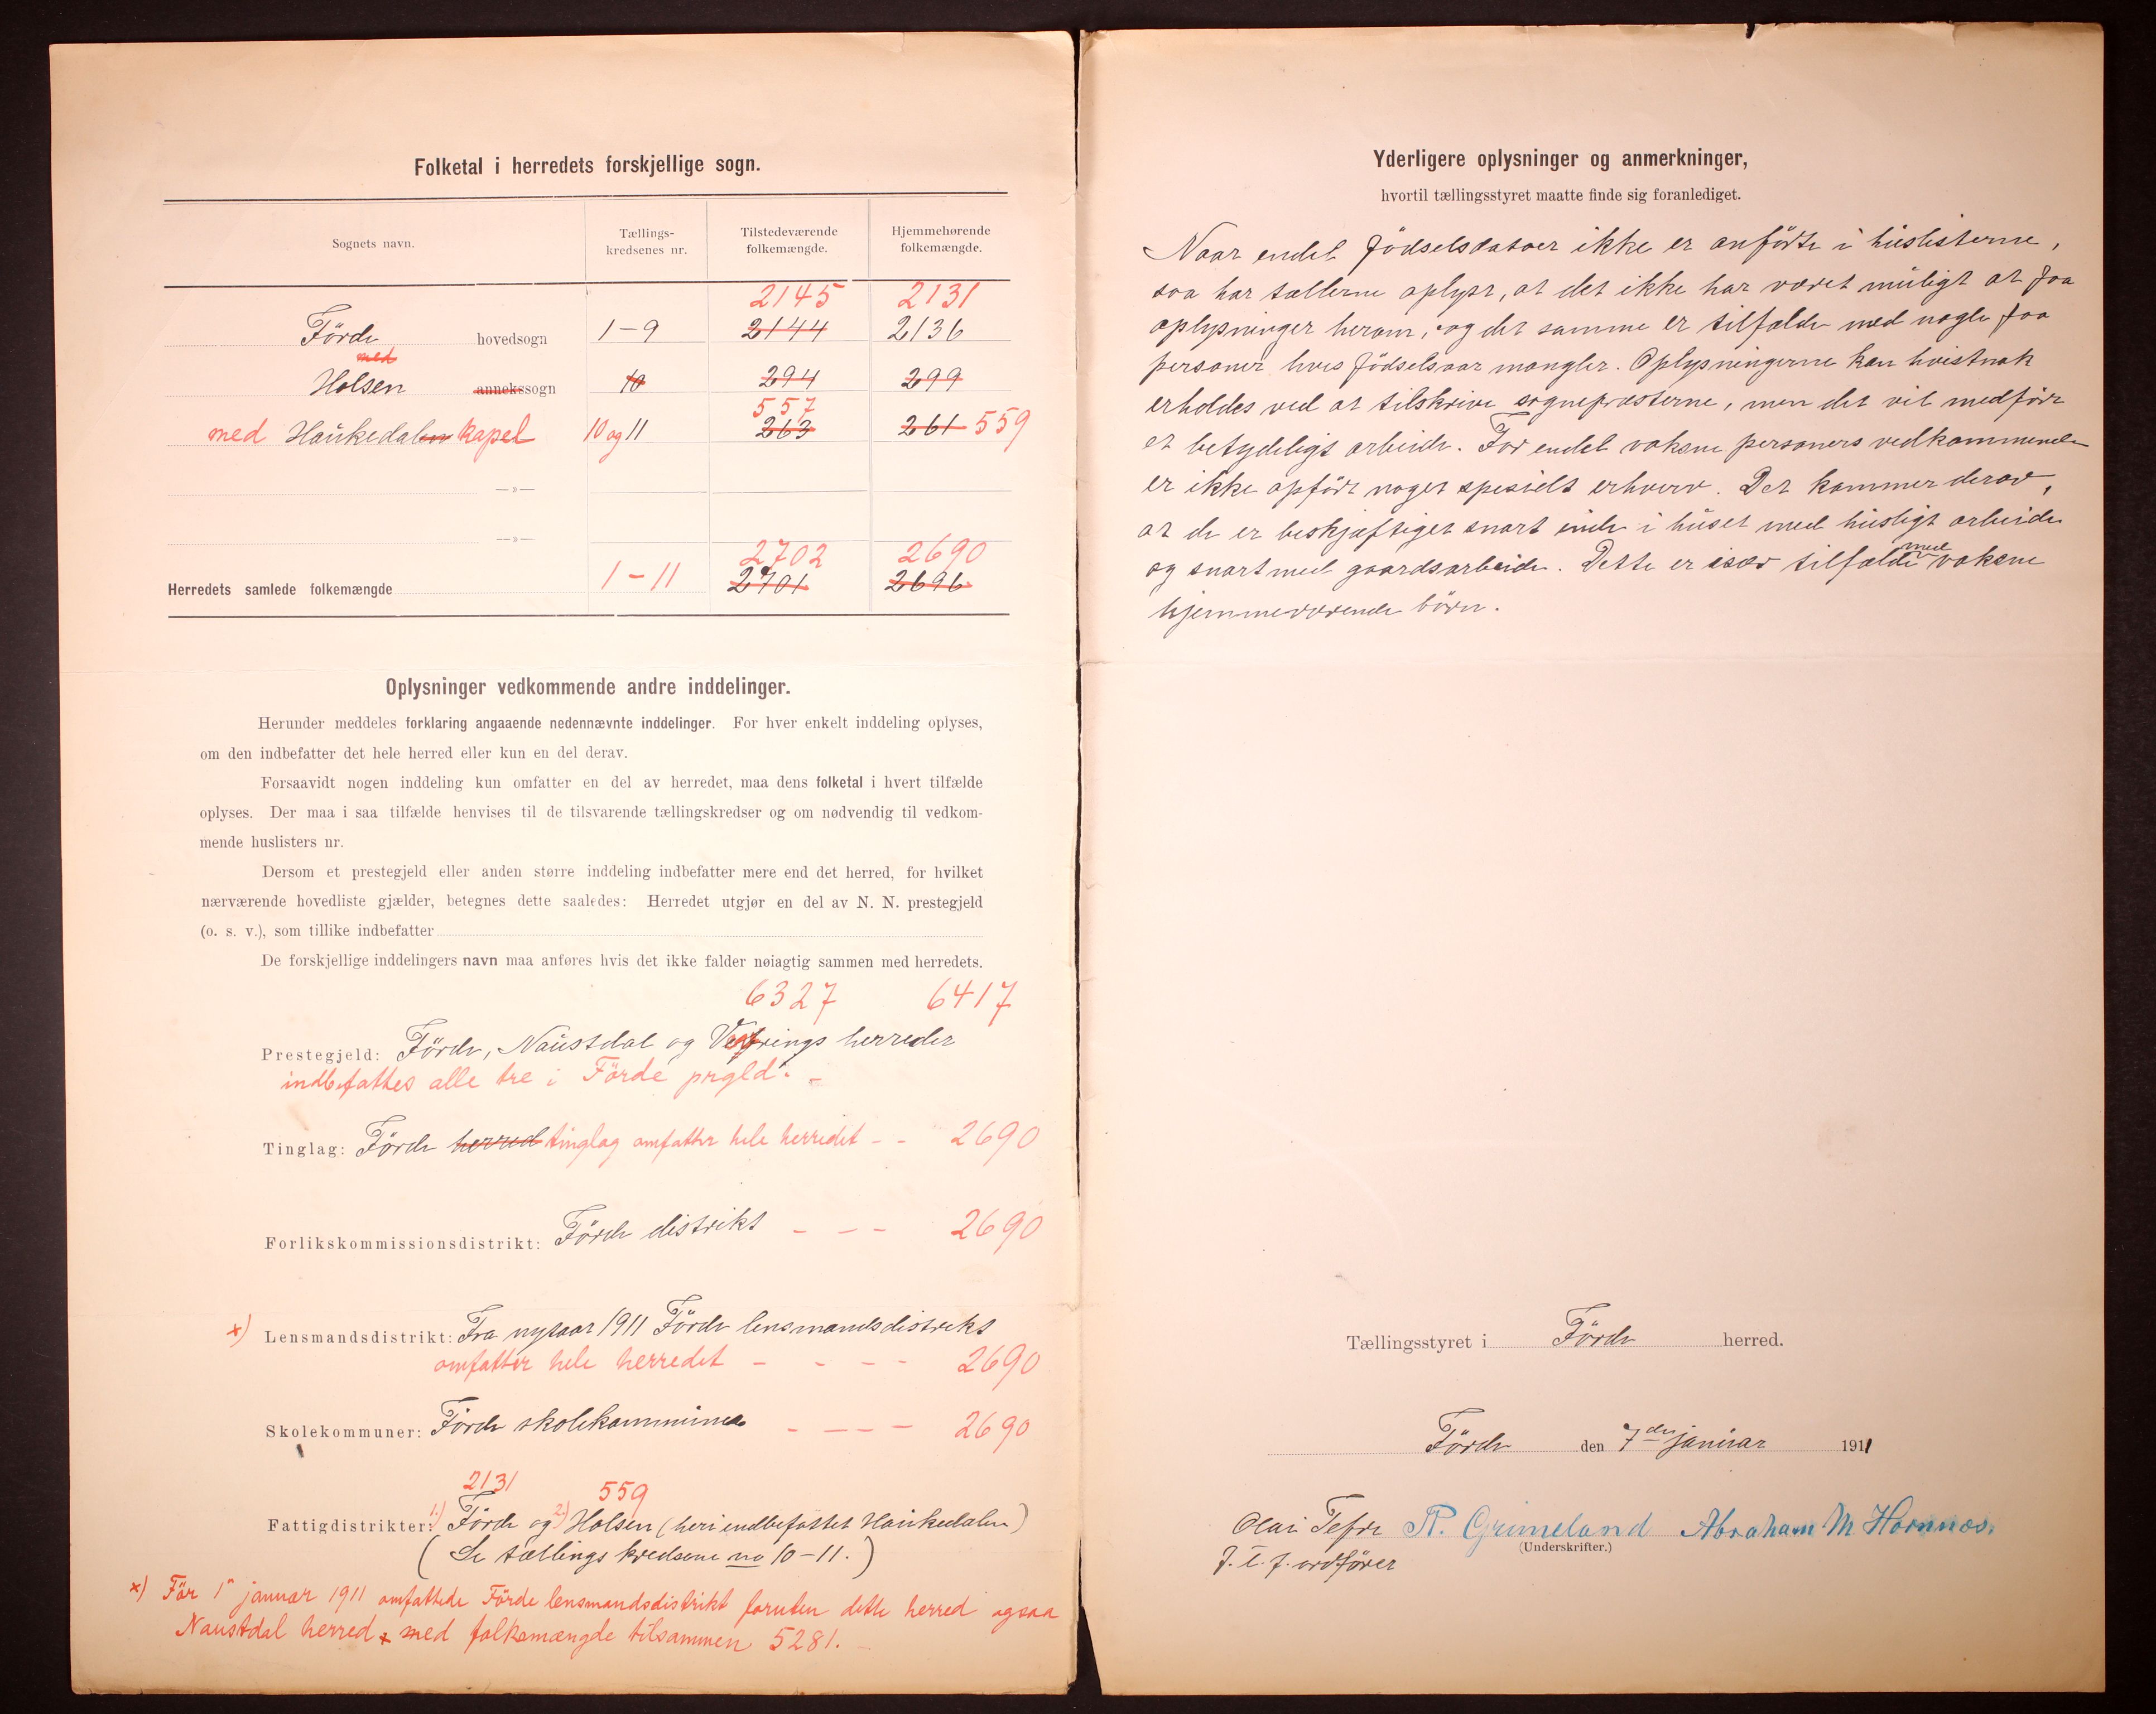 Folketal i herredets forskjellige sogn.
Sognets navn.
Tællings-
kredsenes nr.
Tilstedeværende
folkemængde.
Hjemmehørende
folkemængde.
2145 2131
Förde hovedsogn 1-9 2144 2136
med
Holsen annekssogn 10 294 299
557
med Haukedalen kapel 10 og 11 263 261 559
—»—
—»—
2702 2690
Herredets samlede folkemængde 1-11 2701 2696
Oplysninger vedkommende andre inddelinger.
Herunder meddeles forklaring angaaende nedennævnte inddelinger. For hver enkelt inddeling oplyses,
om den indbefatter det hele herred eller kun en del derav.
Forsaavidt nogen inddeling kun omfatter en del av herredet, maa dens folketal i hvert tilfælde
oplyses. Der maa i saa tilfælde henvises til de tilsvarende tællingskredser og om nødvendig til vedkom-
mende huslisters nr.
Dersom et prestegjeld eller anden større inddeling indbefatter mere end det herred, for hvilket
nærværende hovedliste gjælder, betegnes dette saaledes: Herredet utgjør en del av N. N. prestegjeld
(o. s. v.), som tillike indbefatter
De forskjellige inddelingers navn maa anføres hvis det ikke falder nøiagtig sammen med herredets.
6327 6417
Prestegjeld: Förde, Naustdal og Vevrings herreder
indbefattes alle tre i Förde prgld. -
Tinglag: Förde herred tinglag omfatter hele herredet - - 2690
Forlikskommissionsdistrikt: Förde distrikt - - - 2690
x) Lensmandsdistrikt: Fra nytaar 1911 Förde lensmandsdistrikt
omfatter hele herredet - - - - 2690
Skolekommuner: Förde skolekommune - - - - 2690
2131 559
Fattigdistrikter: 1) Förde og 2) Holsen (heri indbefattet Haukedalen)
(Se tællingskredsene no 10-11.)
x) För 1ᵉ januar 1911 omfattede Förde lensmandsdistrikt foruten dette herred ogsaa
Naustdal herred x med folkemængde tilsammen 5281. -
Yderligere oplysninger og anmerkninger,
hvortil tællingsstyret maatte finde sig foranlediget.
Naar endel födselsdatoer ikke er anförte i huslisterne,
saa har tællerne oplyst, at det ikke har været muligt at faa
oplysninger herom, og det samme er tilfælde med nogle faa
personer hvis födselsaar mangler. Oplysningerne kan hvistnok
erholdes ved at tilskrive sognepræsterne, men det vil medföre
et betydeligt arbeide. For endel voksne personers vedkommende
er ikke opfört noget spesielt erhverv. Det kommer derav,
at de er beskjæftiget snart inde i huset med husligt arbeide
og snart med gaardsarbeide. Dette er især tilfælde med voksne
hjemmeværende börn.
Tællingsstyret i Förde herred.
Förde den 7de januar 1911
Olai Tefre P. Grimeland Abraham M Hornnes.
(Underskrifter.)
f. t. f. ordförer